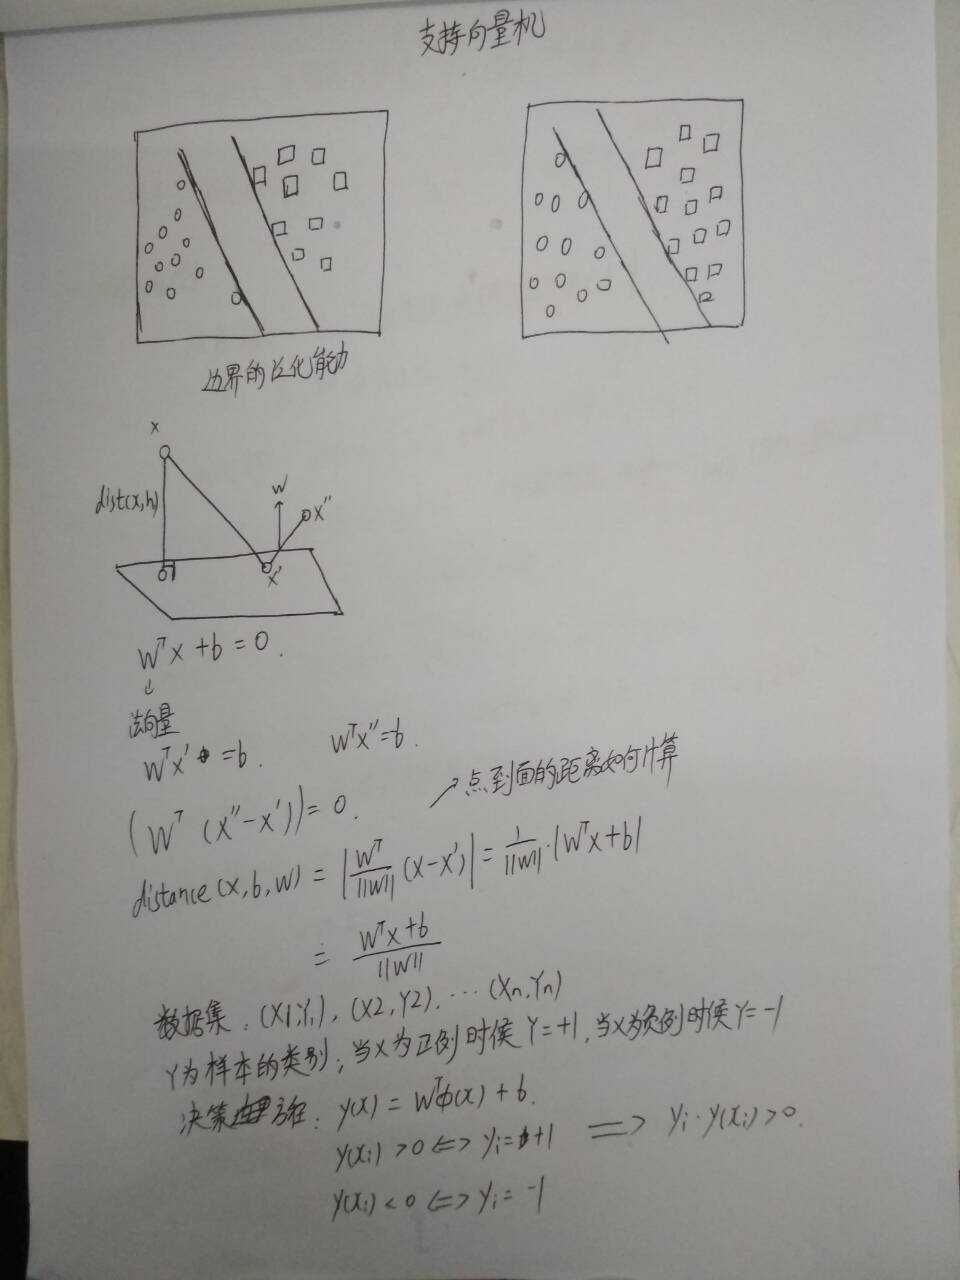 支持向量机
边界的泛化能力
x
dist(x,h)
w
x''
x'
Wᵀx + b = 0.
↓
法向量
Wᵀx' = b. Wᵀx'' = b.
(Wᵀ (x''-x')) = 0. ↗点到面的距离如何计算
distance(x,b,w) = |Wᵀ/||W|| (x-x')| = 1/||W|| · |Wᵀx+b|
= Wᵀx+b / ||W||
数据集: (X1,Y1), (X2,Y2). ... (Xn,Yn)
Y为样本的类别, 当X为正例时候 Y=+1, 当X为负例时候 Y=-1
决策方程: y(x) = Wᵀφ(x) + b.
y(xi) >0 <=> yi = +1 => yi·y(xi) >0.
y(xi) <0 <=> yi = -1